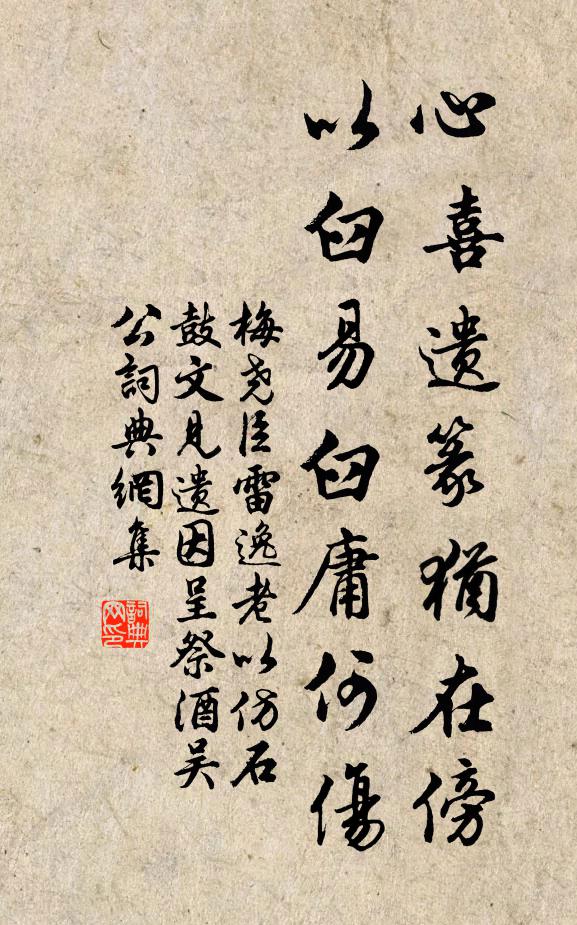 心喜遗篆犹在傍
以臼易臼庸何傷
梅尧臣雷逸老以仿石
鼓文见遗因呈祭酒吴
公詞典網集
詞典网印